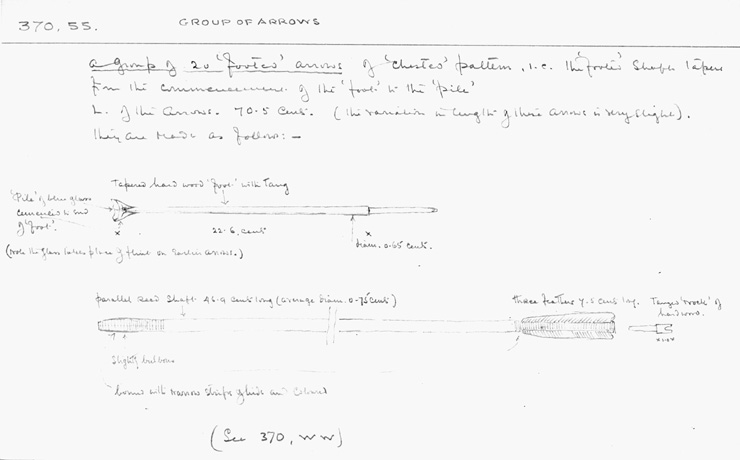 370, 55.
GROUP OF ARROWS
a group of 20 'footed' arrows of 'chested' pattern, i.e. the 'footed' shaft tapers
from the commencement of the 'foot' to the 'pile'
L. of the arrows. 70.5 cent. (the variation in length of these arrows is very slight).
They are made as follows:-
Tapered hard wood 'foot' with Tang
'Pile' of blue glass
cemented to end
of 'foot'.
x
22.6 cent
x
diam. 0.65 cent.
(note the glass takes place of flint on earlier arrows.)
parallel Reed Shaft 46.9 cent long (average diam. 0.75 cent)
three feathers 7.5 cent long.
Tanged 'nock' of
hardwood.
Slightly bulbous
bound with narrow strips of hide and coloured
(See 370, WW)